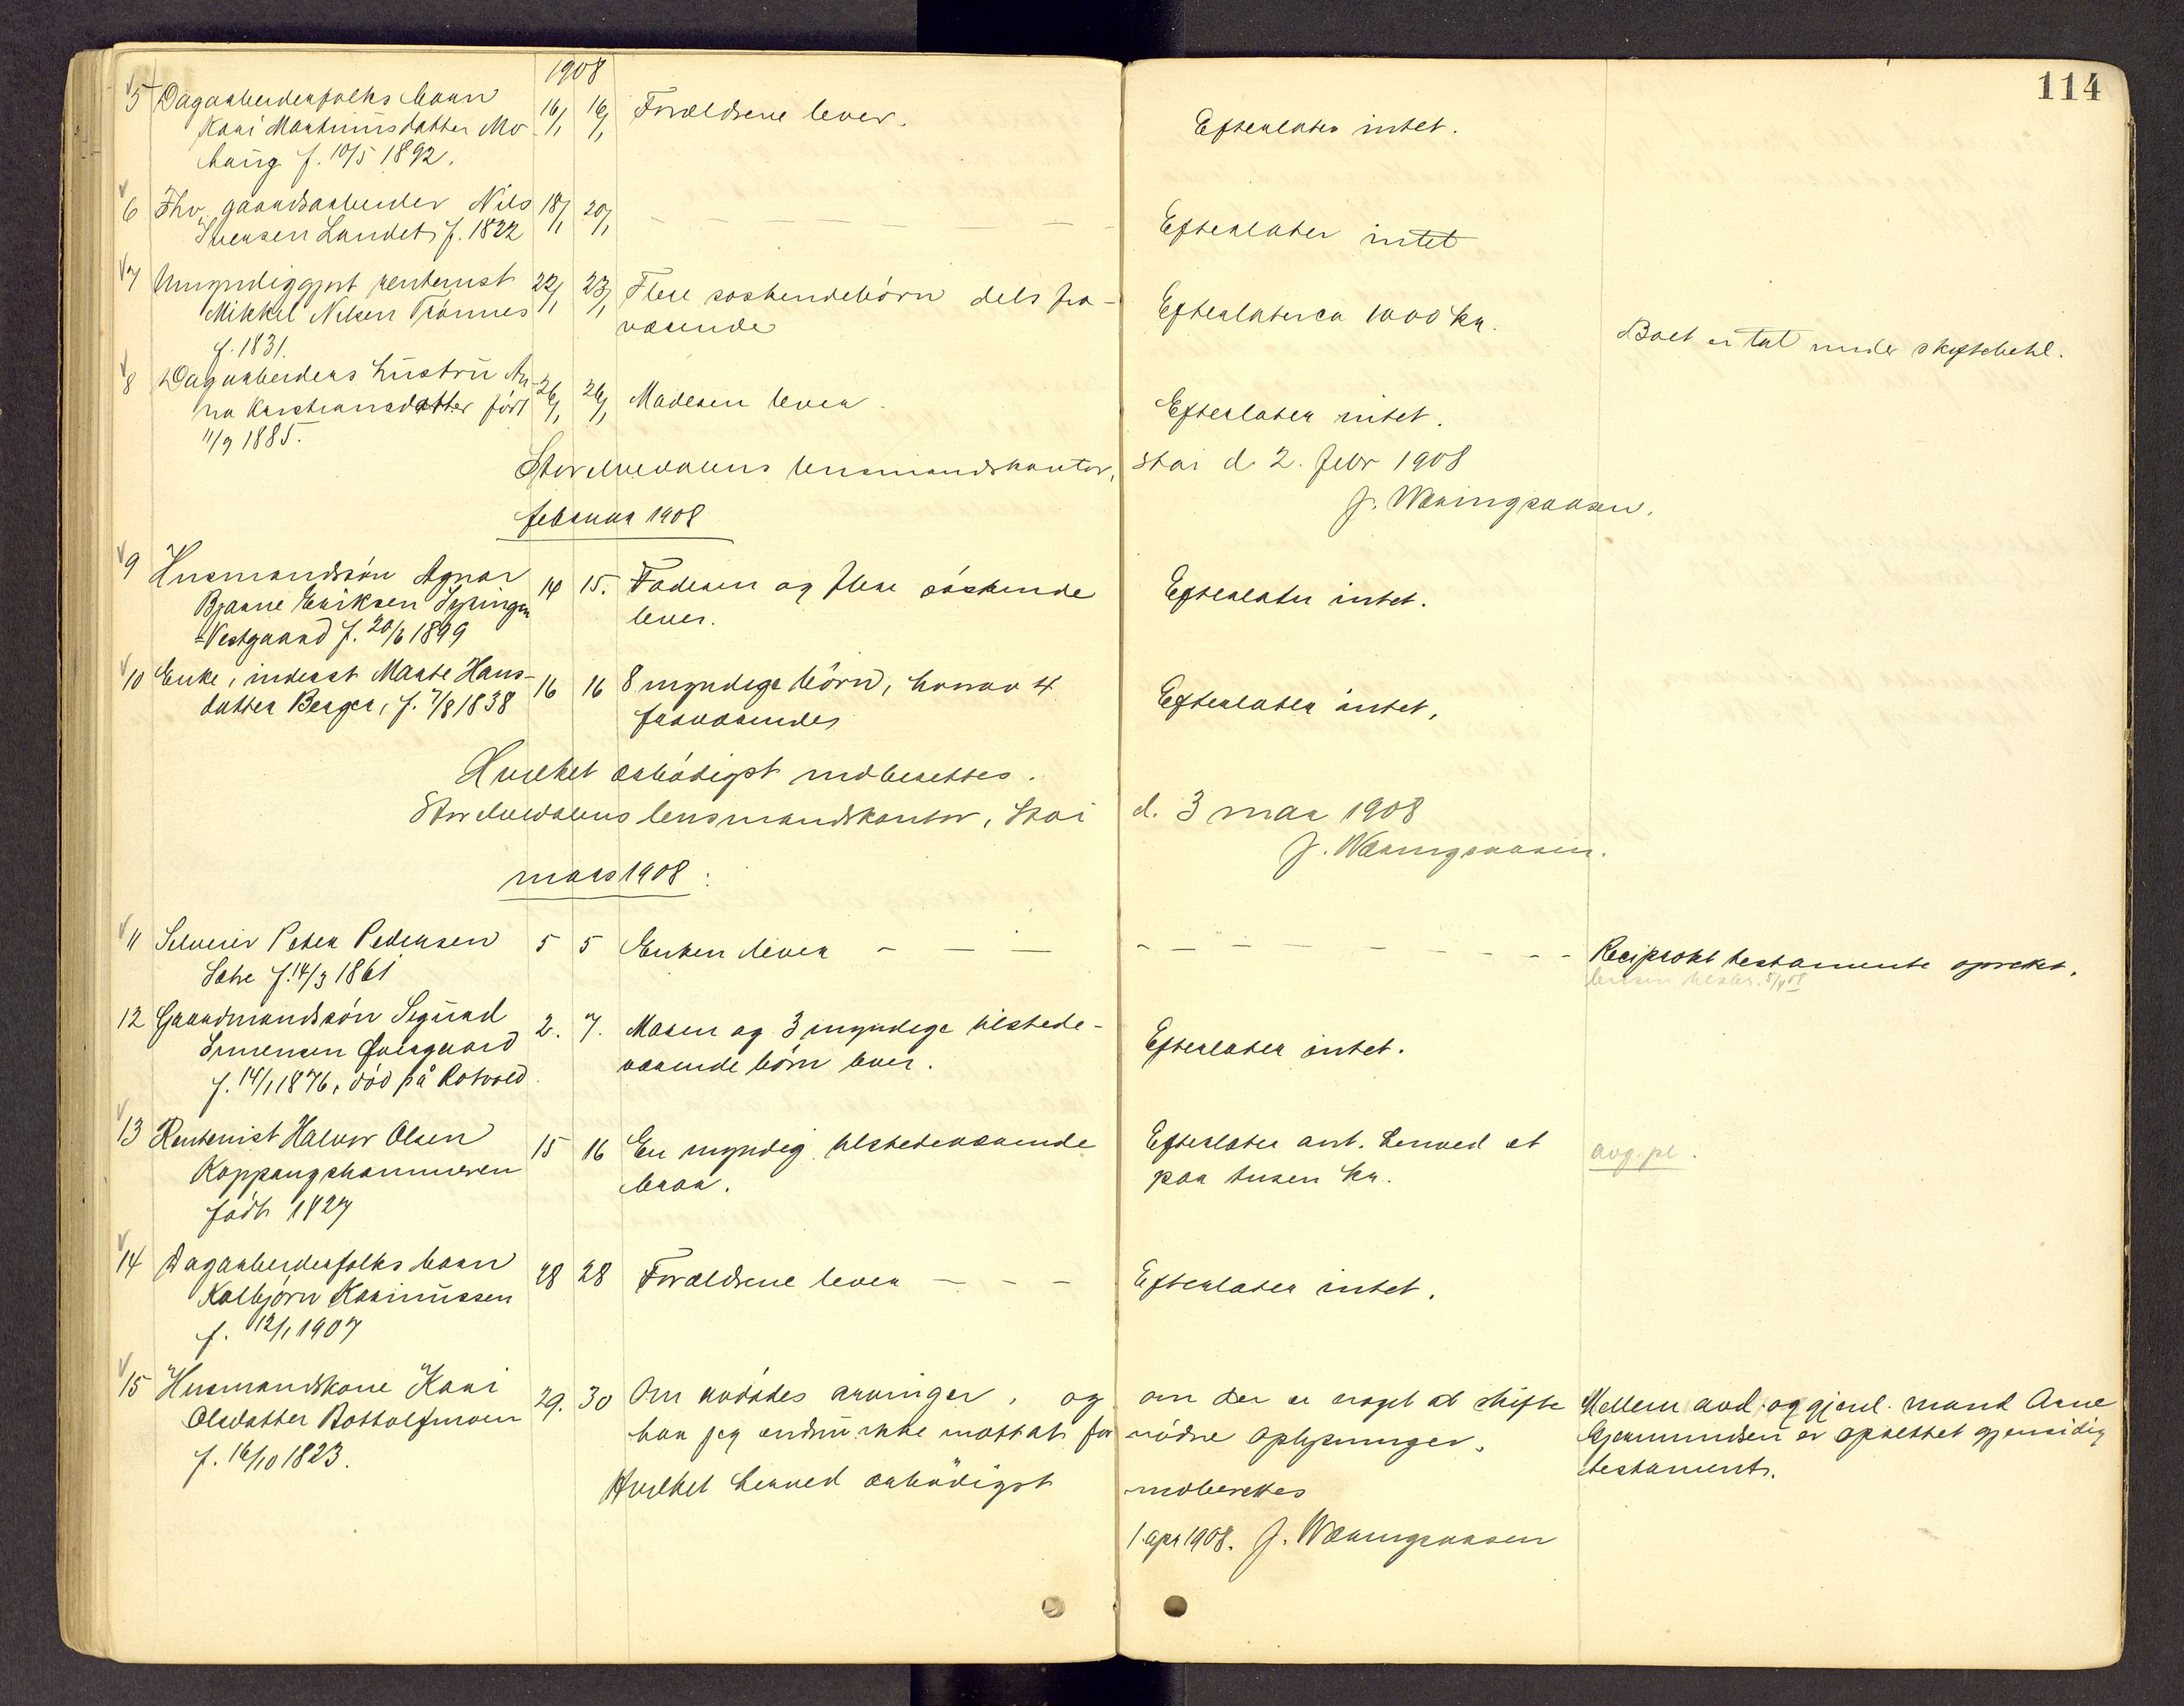 114
1908
5 Dagarbeiderfolks barn 16/1 16/1 Forældrene lever. Efterlater intet.
Kari Martinusdatter Mo-
haug f. 10/5 1892.
6 Fhv. gaardsarbeider Nils 18/1 20/1 — — — — Efterlater intet
Iversen Landet f. 1822
7 Umyndiggjort rentenist 22/1 23/1 Flere søskendebørn dels fra- Efterlater ca 1000 kr.
Mikkel Nilsen Trønnes værende Boet er tat under skiftebehl.
f. 1831.
8 Dagarbeiders hustru An- 26/1 26/1 Moderen lever. Efterlater intet.
na Kristiansdatter født
11/9 1885.
Storelvedalens lensmandskontor, Stai d. 2. febr 1908
J. Wæringsaasen.
februar 1908
9 Husmandssøn Agnar 14 15. Faderen og flere søskende Efterlater intet.
Bjarne Eriksen lever.
-Vestgaard f. 20/6 1899
10 Enke, inderst Marte Hans- 16 16 8 myndige børn, hvorav 4 Efterlater intet,
datter Berger, f. 7/8 1838 fraværende
Hvilket ærbødigst indberettes.
Storelvedalens lensmandskontor, Stai d. 3 mar 1908
J. Wæringsaasen.
mars 1908:
11 Selveier Peter Pedersen 5 5 Enken lever — — — Reciprokt testamente oprettet.
Sætre f. 14/3 1861
12 Gaardmandssøn Sigurd 2. 7. Moren og 3 myndige tilstede- Efterlater intet.
Simensen Øvergaard værende børn lever.
f. 14/1 1876, død på Rotvold.
13 Rentenist Halvor Olsen 15 16 En myndig tilstedeværende Efterlater ant. henved et
Koppangshammeren barn. par tusen kr. avg. pl.
født 1827
14 Dagarbeiderfolks barn 28 28 Forældrene lever — — — Efterlater intet.
Kolbjørn Karinussen
f. 12/1 1907
15 Husmandskone Kari 29. 30 Om avdødes arvinger, og om der er noget at skifte Mellem avd. og gjenl. mand Arne
Olsdatter Bottolfmoen har jeg endnu ikke mottat fornødne oplysninger. Gjermundsen er oprettet gjensidig
f. 16/10 1823. testament.
Hvilket herved ærbødigst indberettes
1 apr 1908. J. Wæringsaasen